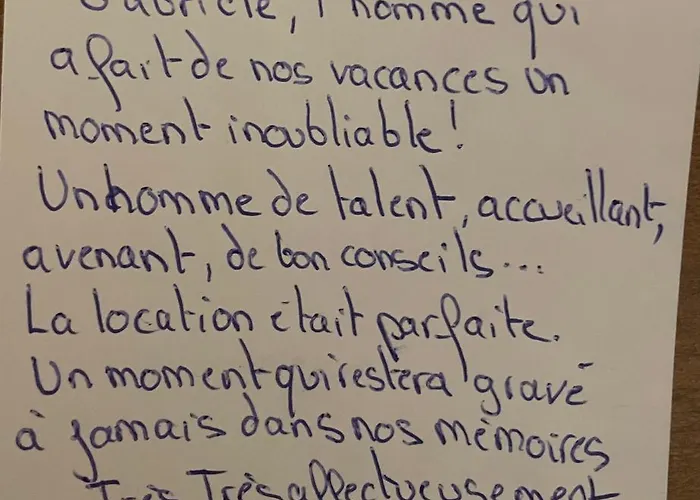 Gabriele, l'homme qui
a fait de nos vacances un
moment inoubliable!
Un homme de talent, accueillant,
avenant, de bon conseils...
La location était parfaite.
Un moment qui restera gravé
à jamais dans nos mémoires
Très Très affectueusement